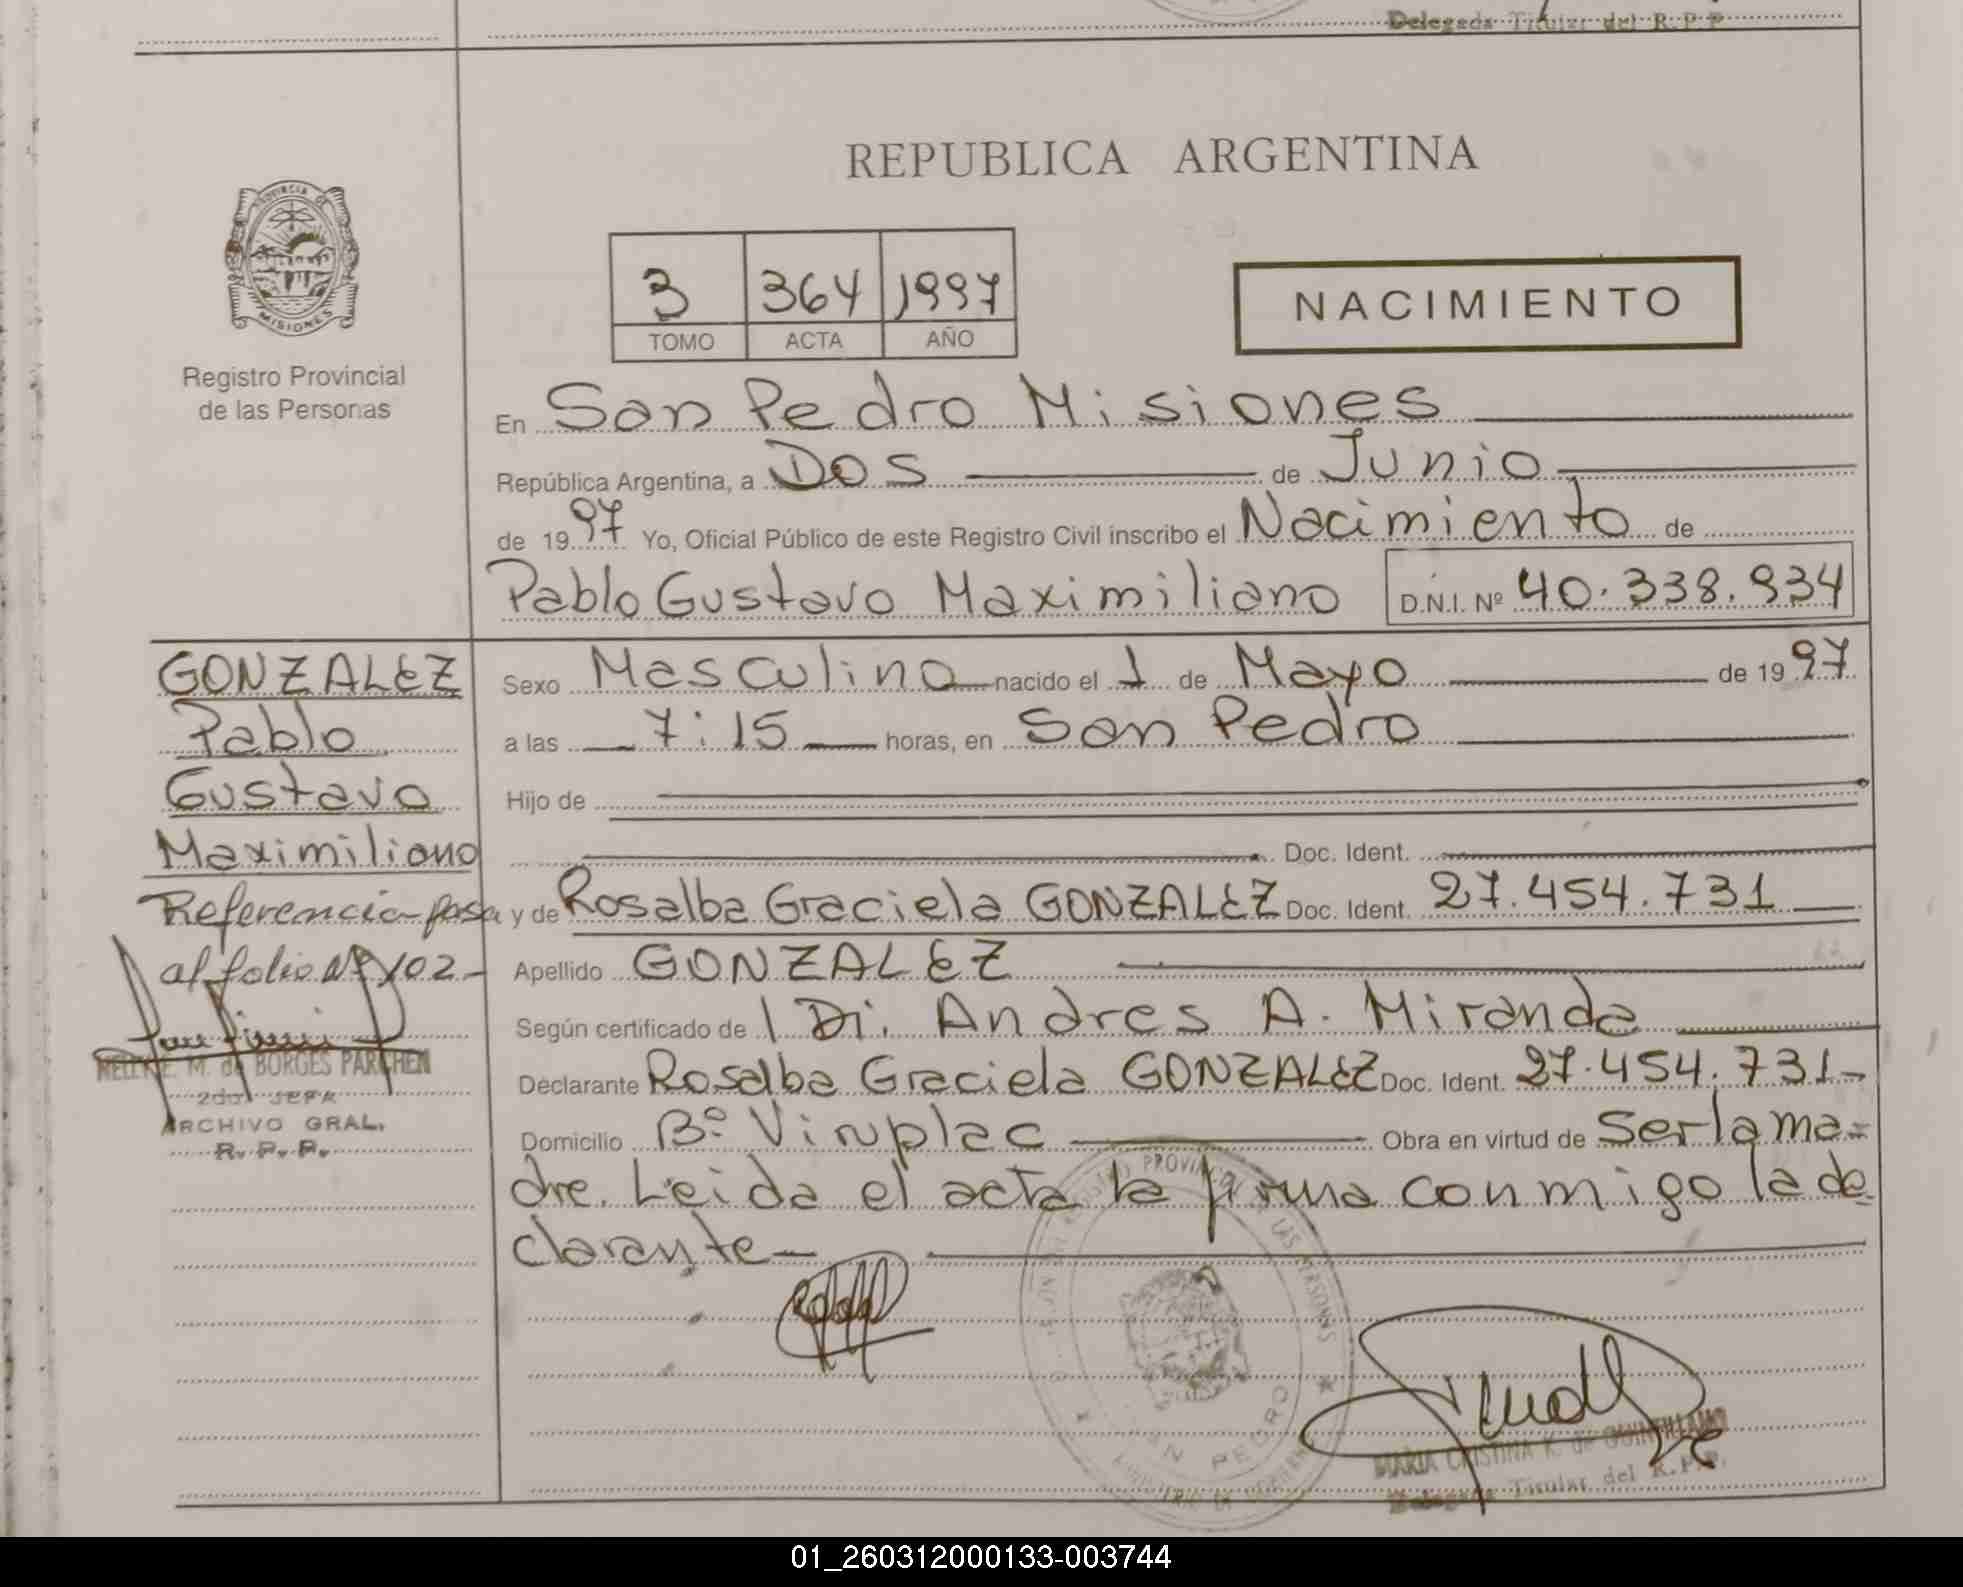 Delegada Titular del R.P.P
REPUBLICA ARGENTINA
PROVINCIA DE
MISIONES
Registro Provincial
de las Personas
3 364 1997
TOMO ACTA AÑO
NACIMIENTO
En San Pedro Misiones
República Argentina, a Dos de Junio
de 1997 Yo, Oficial Público de este Registro Civil inscribo el Nacimiento de
Pablo Gustavo Maximiliano D.N.I. Nº 40.338.934
GONZALEZ
Pablo
Gustavo
Maximiliano
Referencia pasa
al folio Nº 102-
NELLY E. M. de BORGES PARCHEN
2do. JEFA
ARCHIVO GRAL.
R. P. P.
Sexo Masculino nacido el 1 de Mayo de 1997
a las 7:15 horas, en San Pedro
Hijo de
Doc. Ident.
y de Rosalba Graciela GONZALEZ Doc. Ident. 27.454.731
Apellido GONZALEZ
Según certificado de Di. Andres A. Miranda
Declarante Rosalba Graciela GONZALEZ Doc. Ident. 27.454.731-
Domicilio Bº Vinplac Obra en virtud de Ser la ma=
dre. Leida el acta la firma conmigo la de
clarante-
SAN PEDRO
MARIA CRISTINA K. de QUINTILLANO
Delegada Titular del R.P.P.
01_260312000133-003744